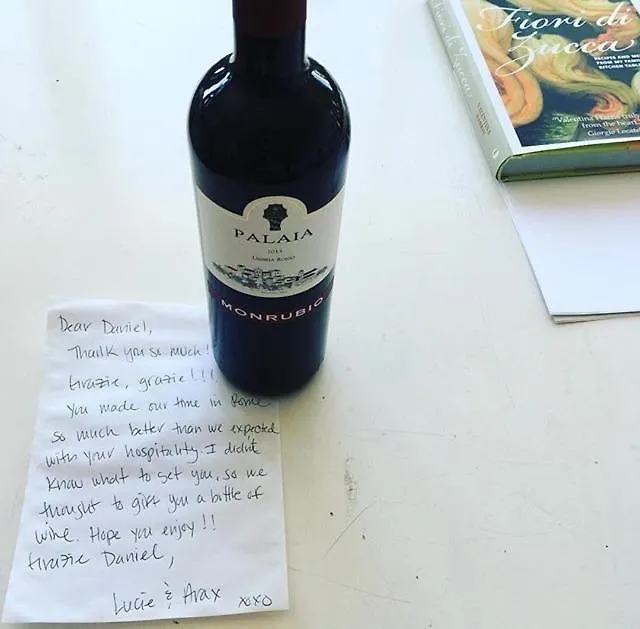 Fiori di
Zucca
RECIPES AND
FROM MY FAMILY
KITCHEN TABLE
Valentina Harris truly
from the heart
Giorgio Locate
PALAIA
UMBRIA ROSSO
MONRUBIO
Dear Daniel,
Thank you so much!
Grazie, grazie!!!
You made our time in Rome
so much better than we expected
with your hospitality. I didn't
know what to get you, so we
thought to gift you a bottle of
wine. Hope you enjoy!!
Grazie Daniel,
Lucie & Arax xoxo